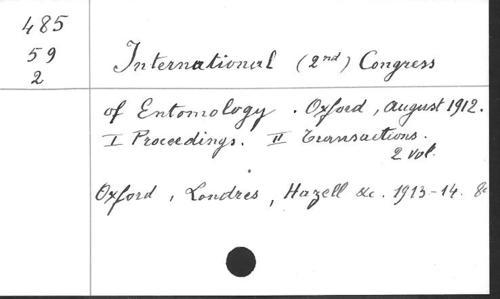 485
59
2
International (2nd) Congress
of Entomology. Oxford, August 1912.
I Proceedings. II Transactions.
2 vol.
Oxford, Londres, Hazell &c. 1913-14. 8c